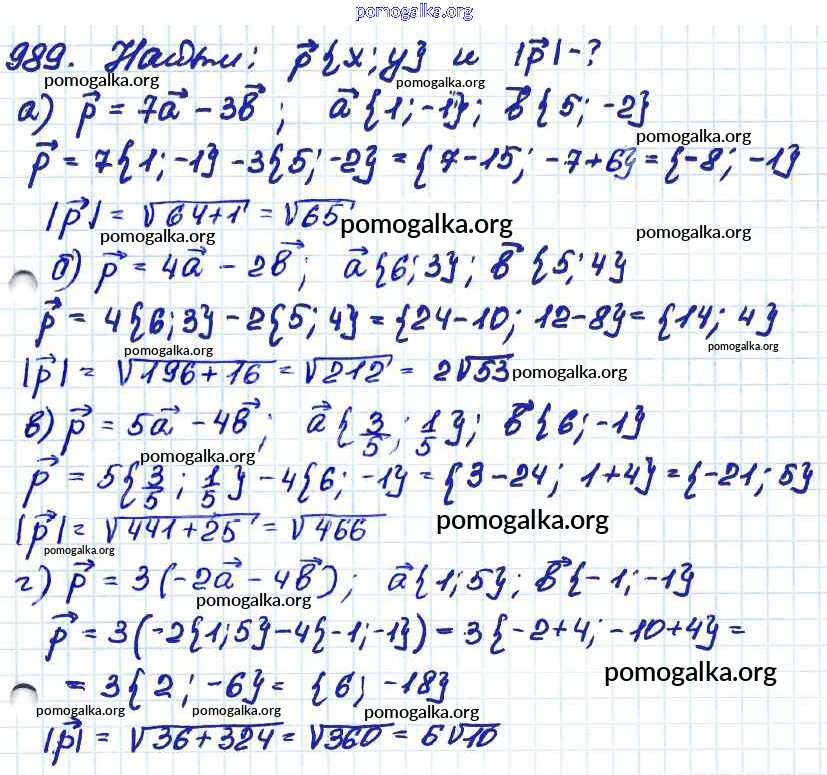 pomogalka.org
989. Найти: p⃗{x; y} и |p⃗| - ?
pomogalka.org pomogalka.org
а) p⃗ = 7a⃗ - 3b⃗; a⃗{1; -1}; b⃗{5; -2}
pomogalka.org
p⃗ = 7{1; -1} - 3{5; -2} = {7-15; -7+6} = {-8; -1}
|p⃗| = √64+1 = √65 pomogalka.org pomogalka.org
pomogalka.org
б) p⃗ = 4a⃗ - 2b⃗; a⃗{6; 3}; b⃗{5; 4}
p⃗ = 4{6; 3} - 2{5; 4} = {24-10; 12-8} = {14; 4}
pomogalka.org pomogalka.org
|p⃗| = √196+16 = √212 = 2√53 pomogalka.org
в) p⃗ = 5a⃗ - 4b⃗; a⃗{3/5; 1/5}; b⃗{6; -1}
pomogalka.org
p⃗ = 5{3/5; 1/5} - 4{6; -1} = {3-24; 1+4} = {-21; 5}
|p⃗| = √441+25 = √466 pomogalka.org
pomogalka.org
г) p⃗ = 3(-2a⃗ - 4b⃗); a⃗{1; 5}; b⃗{-1; -1}
pomogalka.org
p⃗ = 3(-2{1; 5} - 4{-1; -1}) = 3{-2+4; -10+4} =
pomogalka.org
= 3{2; -6} = {6; -18}
pomogalka.org pomogalka.org pomogalka.org
|p⃗| = √36+324 = √360 = 6√10